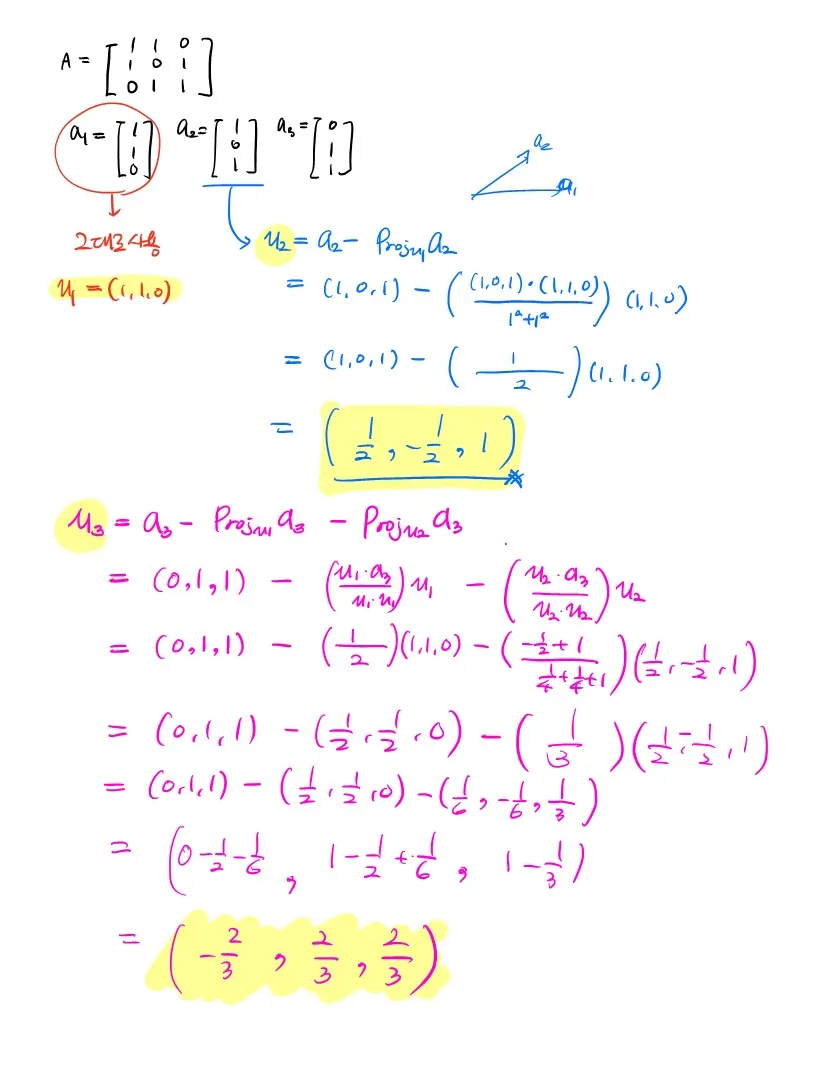 A = [ 1 1 0
1 0 1
0 1 1 ]
a₁ = [ 1 1 0 ] a₂ = [ 1 0 1 ] a₃ = [ 0 1 1 ]
a₂
a₁
그대로 사용
u₁ = (1, 1, 0)
u₂ = a₂ - Proju₁ a₂
= (1, 0, 1) - ( (1,0,1)·(1,1,0) / 1²+1² ) (1, 1, 0)
= (1, 0, 1) - ( 1 / 2 ) (1, 1, 0)
= ( 1/2 , -1/2 , 1 )
u₃ = a₃ - Proju₁ a₃ - Proju₂ a₃
= (0, 1, 1) - ( u₁·a₃ / u₁·u₁ ) u₁ - ( u₂·a₃ / u₂·u₂ ) u₂
= (0, 1, 1) - ( 1 / 2 ) (1, 1, 0) - ( -1/2 + 1 / 1/4 + 1/4 + 1 ) ( 1/2 , -1/2 , 1 )
= (0, 1, 1) - ( 1/2 , 1/2 , 0 ) - ( 1 / 3 ) ( 1/2 , -1/2 , 1 )
= (0, 1, 1) - ( 1/2 , 1/2 , 0 ) - ( 1/6 , -1/6 , 1/3 )
= ( 0 - 1/2 - 1/6 , 1 - 1/2 + 1/6 , 1 - 1/3 )
= ( -2/3 , 2/3 , 2/3 )